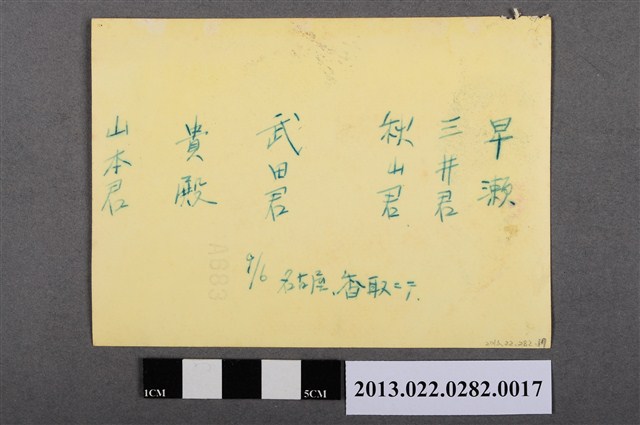 早瀬
三井君
秋山君
武田君
貴殿
山本君
9/6 名古屋、香取ニテ.
A663
2013.022.0282.0017
1CM
5CM
2013.022.0282.0017